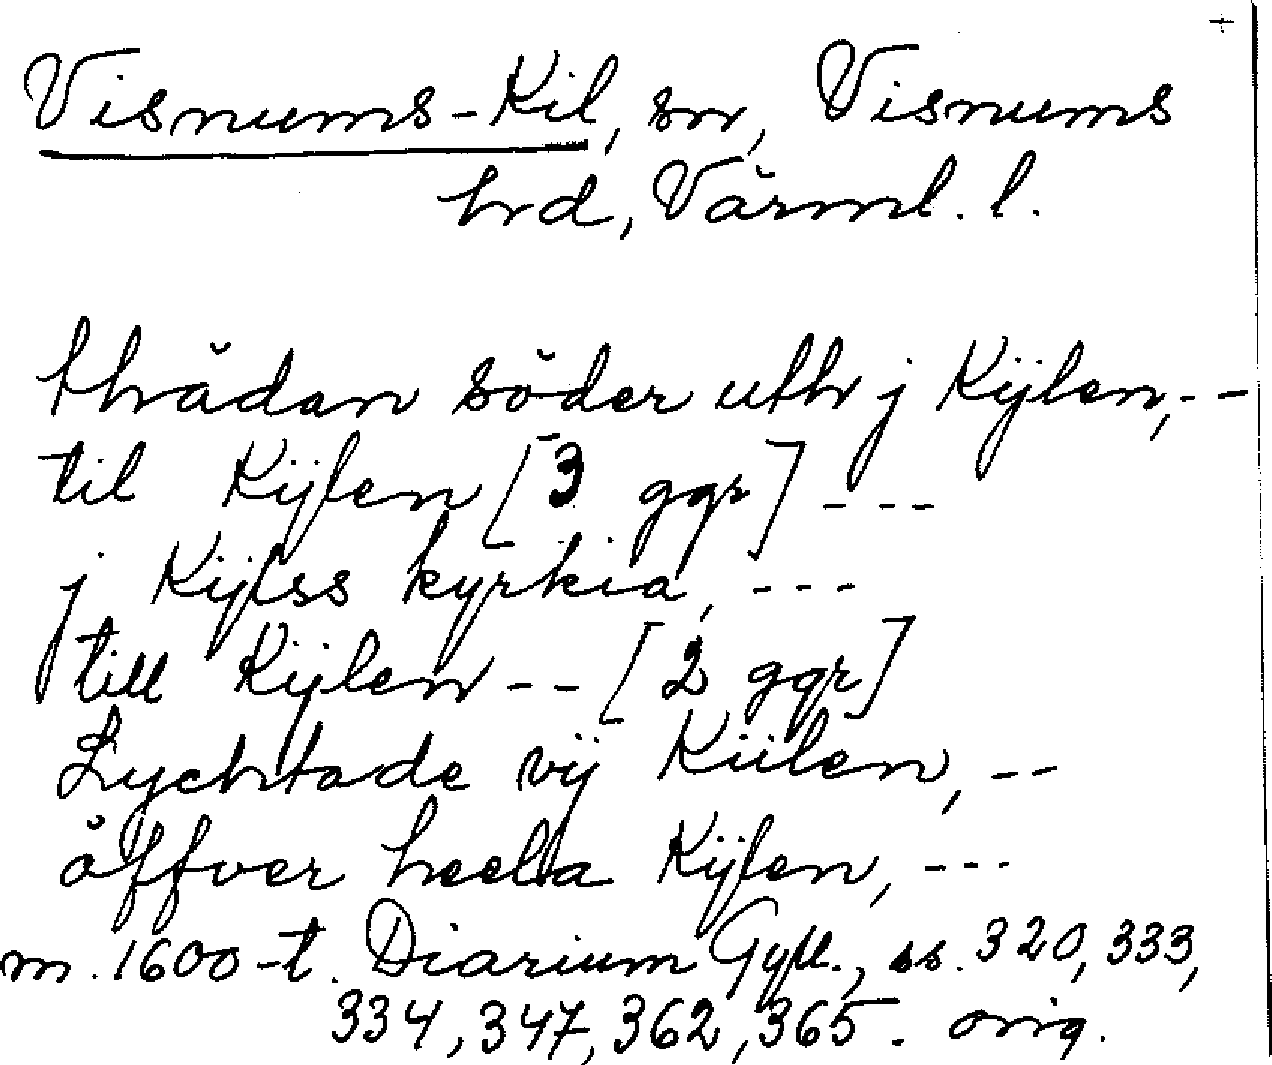 Visnums-Kil, sn, Visnums
hrd, Värml. l.
thrådan söder uth j Kijlen, --
til Kijlen [3 ggr] ---
j Kijlss kyrkia, ---
till Kijlen -- [2 ggr]
Lychtade vij Kiilen, --
öffver heela Kijlen, ---
m. 1600-t. Diarium Gyll., ss. 320, 333,
334, 347, 362, 365. orig.